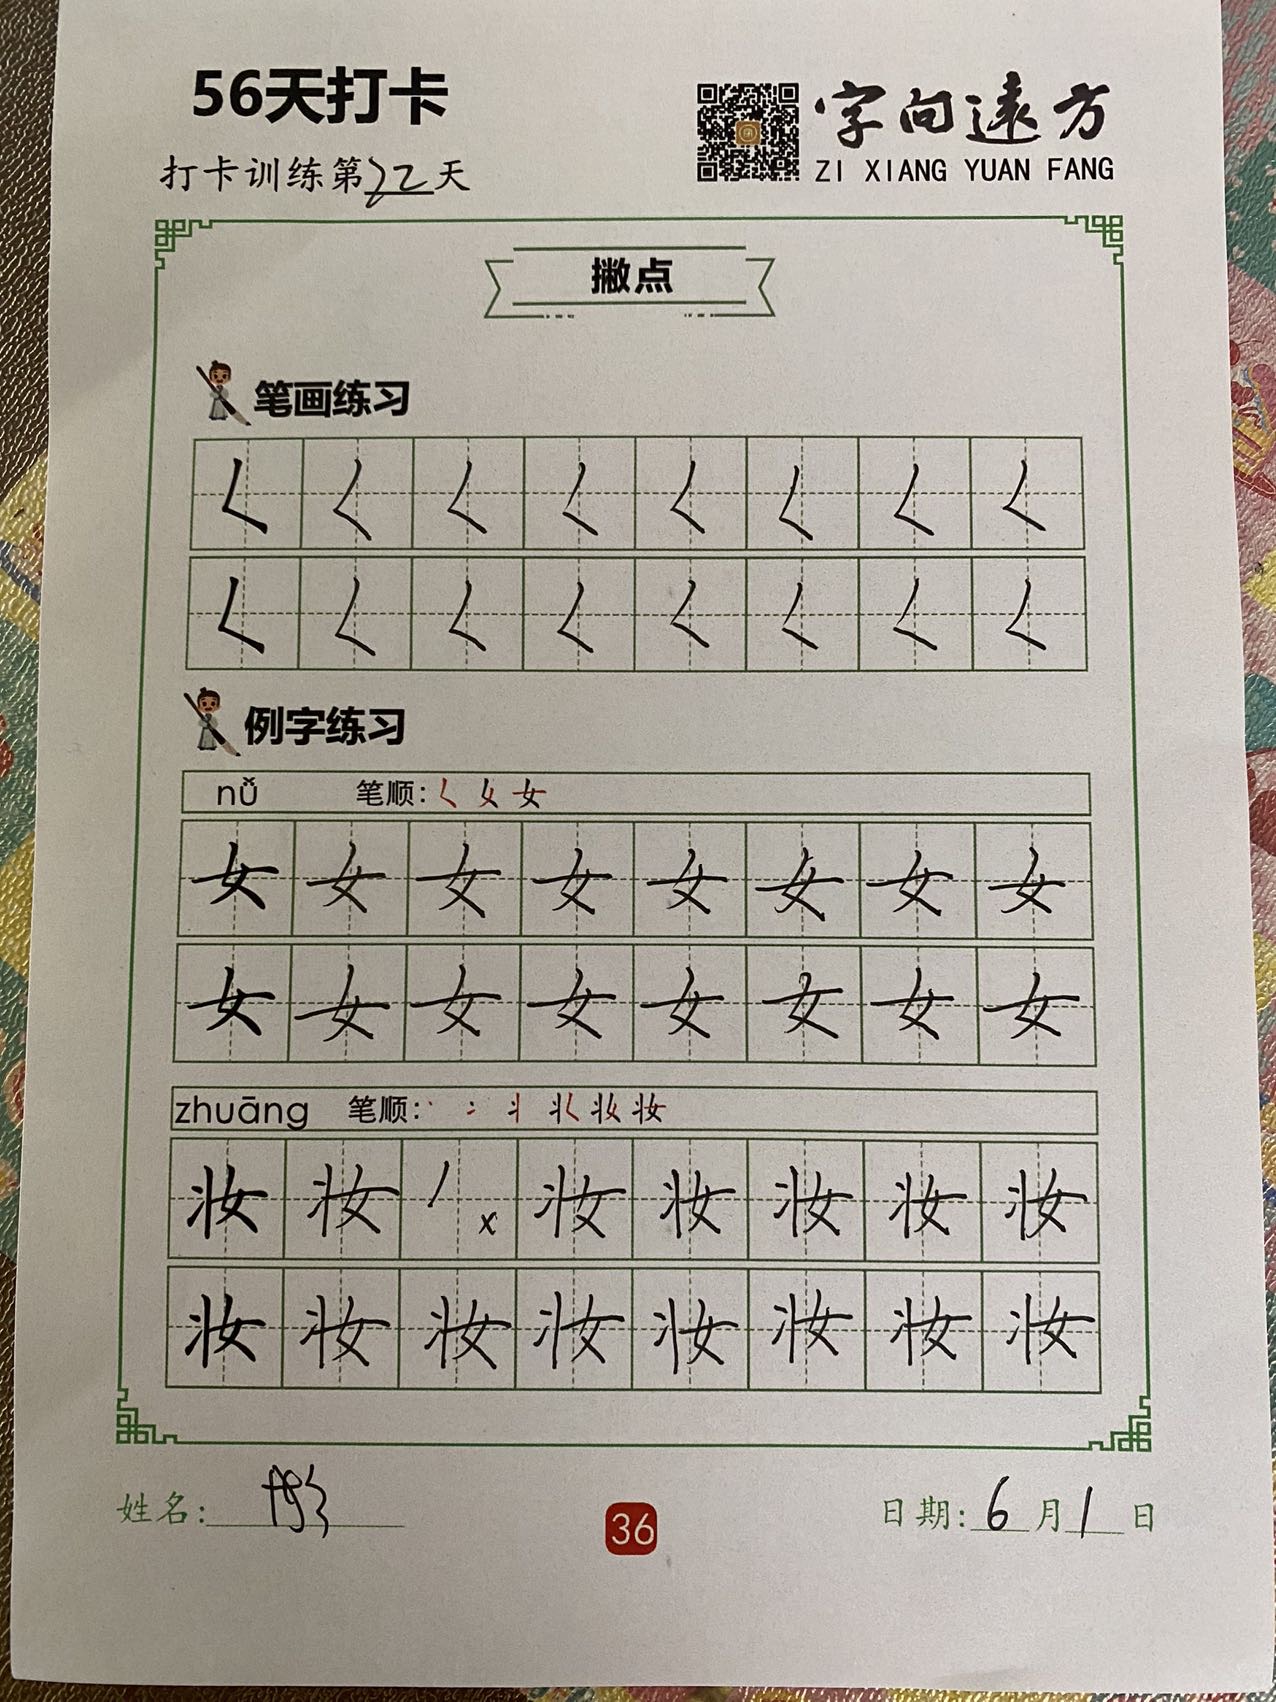 56天打卡
字向远方
打卡训练第22天
ZI XIANG YUAN FANG
撇点
笔画练习
𡿨 𡿨 𡿨 𡿨 𡿨 𡿨 𡿨 𡿨
𡿨 𡿨 𡿨 𡿨 𡿨 𡿨 𡿨 𡿨
例字练习
nǚ 笔顺:𡿨 女 女
女 女 女 女 女 女 女 女
女 女 女 女 女 女 女 女
zhuāng 笔顺: 妆
妆 妆 x 妆 妆 妆 妆 妆
妆 妆 妆 妆 妆 妆 妆 妆
姓名: 日期:6月1日
36